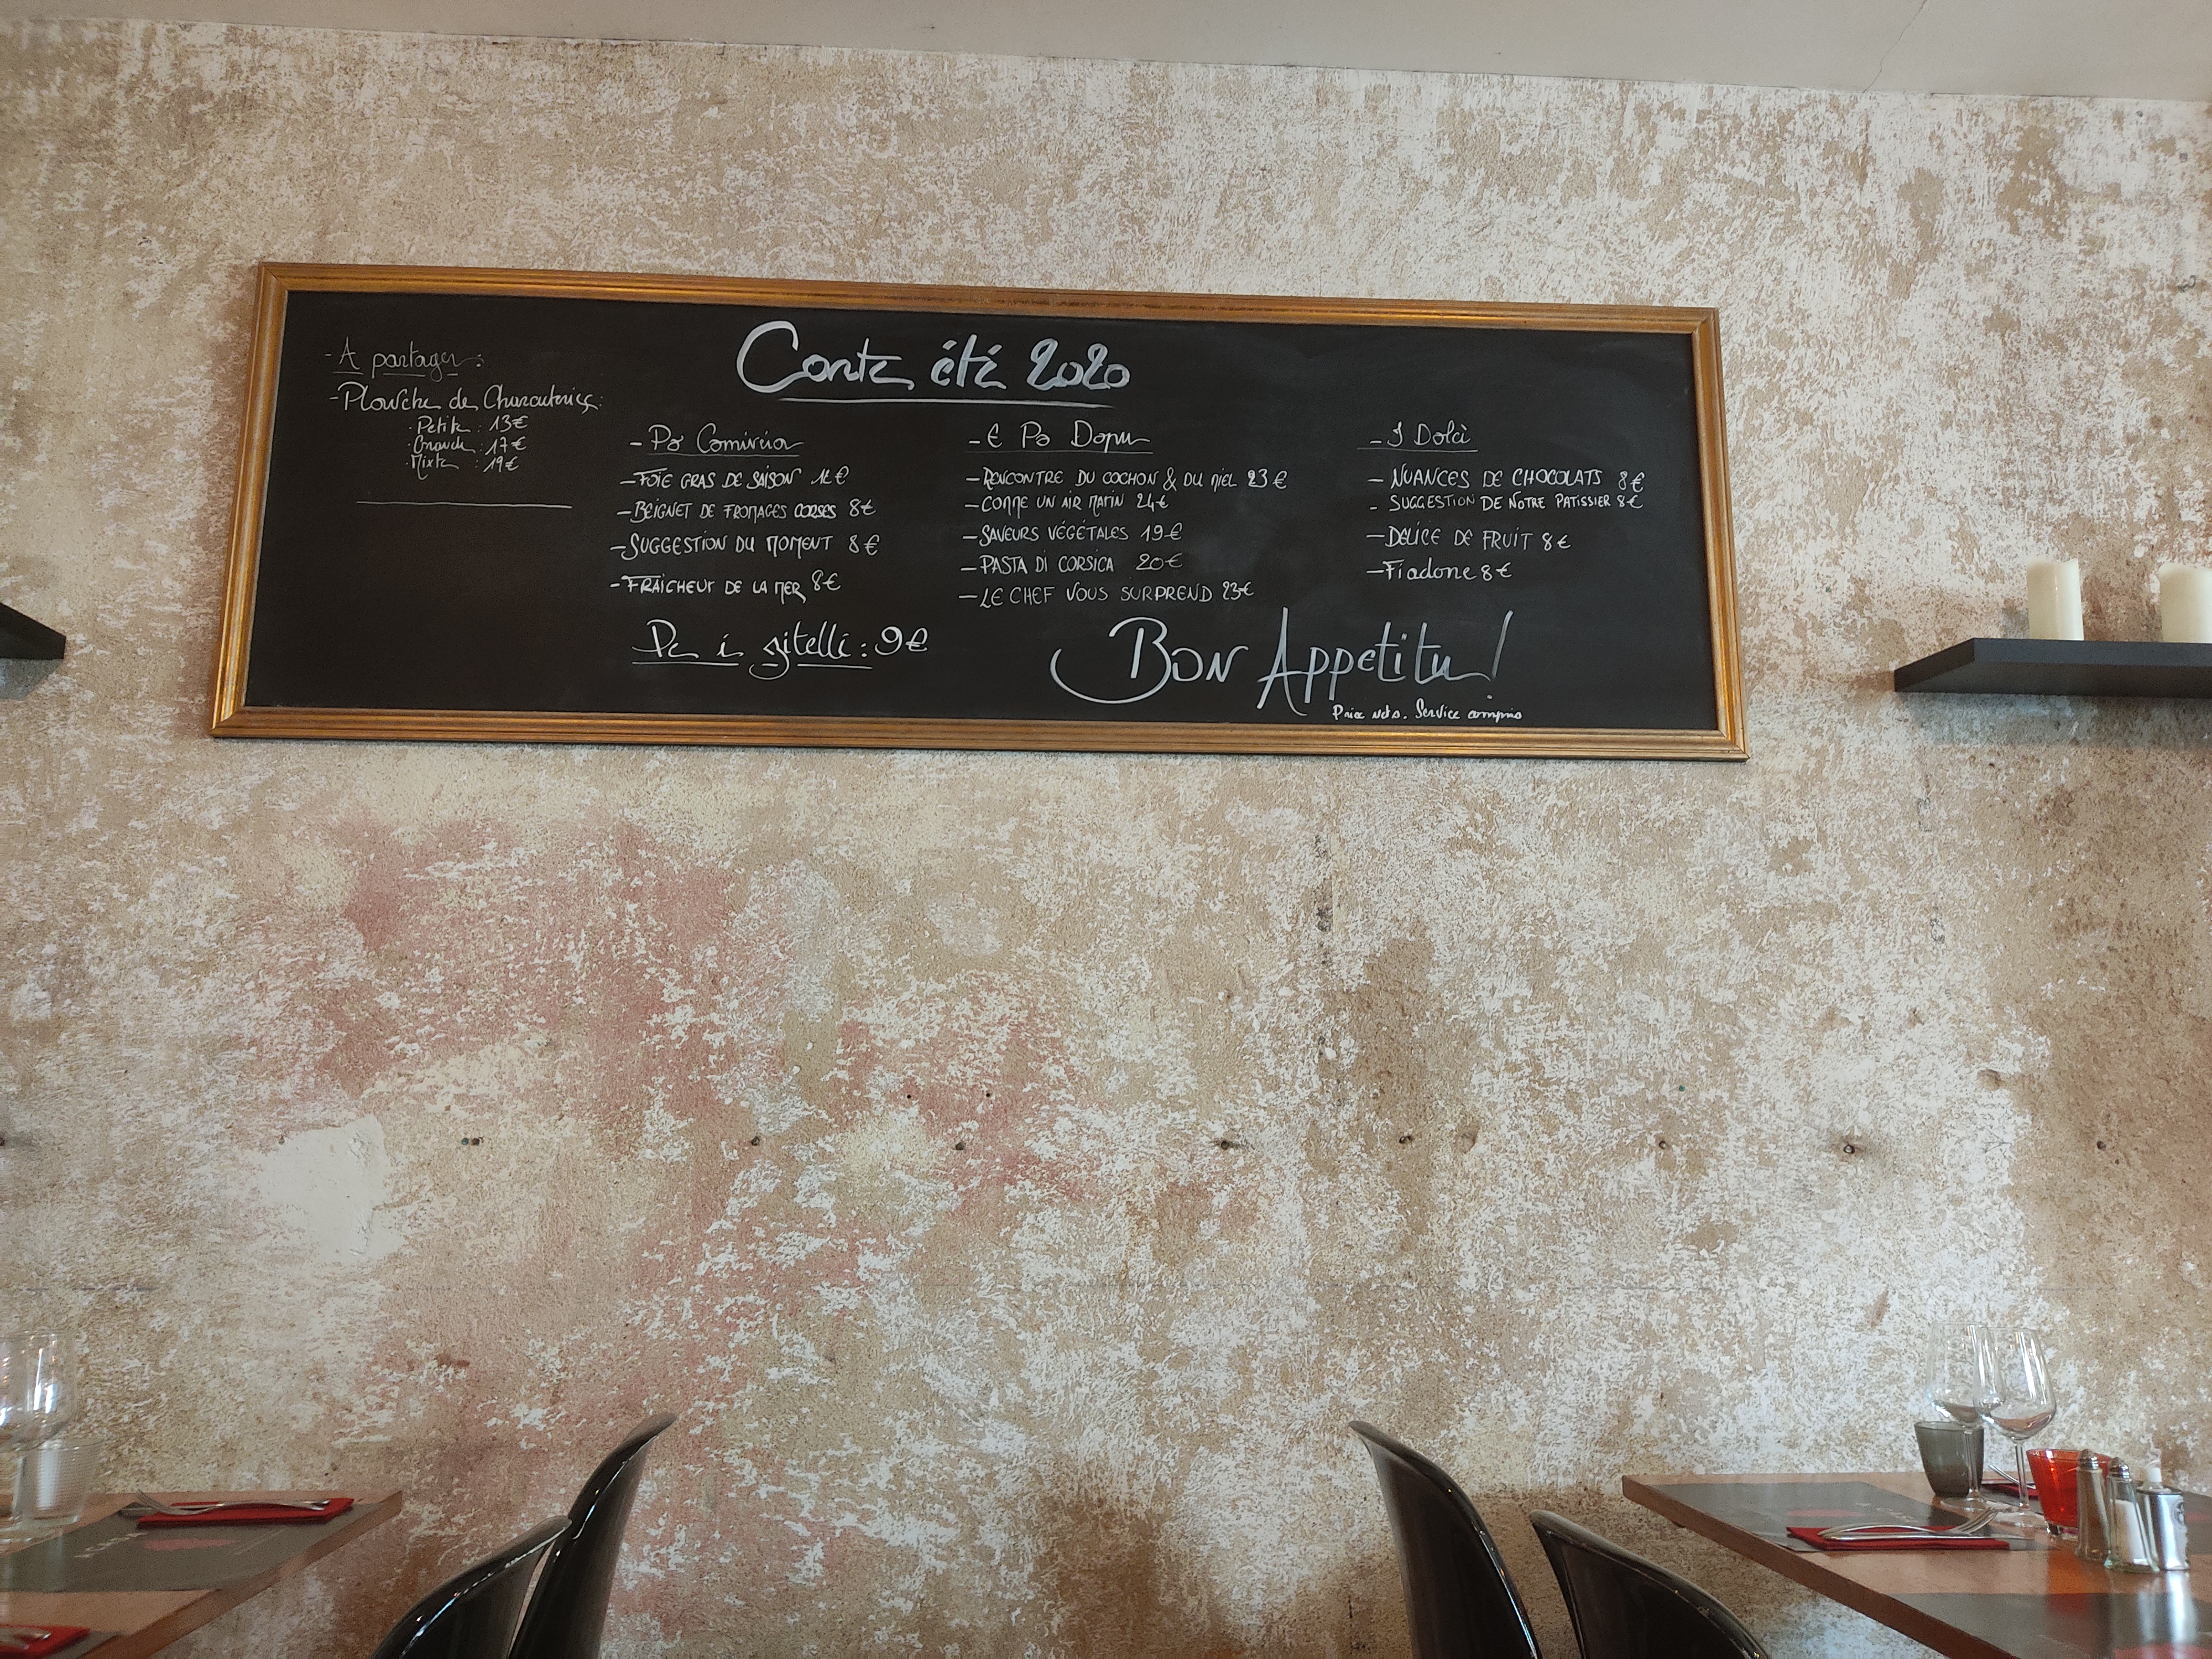 Carte été 2020
- A partager :
- Planche de Charcuteries :
· Petite : 13€
· Grande : 17€
· Mixte : 19€
- Pà Comincià
- FOIE GRAS DE SAISON 12€
- BEIGNET DE FROMAGES CORSES 8€
- SUGGESTION DU MOMENT 8€
- FRAÎCHEUR DE LA MER 8€
Pe i zitelli : 9€
- E Pò Dopu
- RENCONTRE DU COCHON & DU MIEL 23€
- COMME UN AIR MARIN 24€
- SAVEURS VÉGÉTALES 19€
- PASTA DI CORSICA 20€
- LE CHEF VOUS SURPREND 23€
- I Dolci
- NUANCES DE CHOCOLATS 8€
- SUGGESTION DE NOTRE PATISSIER 8€
- DELICE DE FRUIT 8€
- Fiadone 8€
BON Appetitu !
Prix nets. Service compris